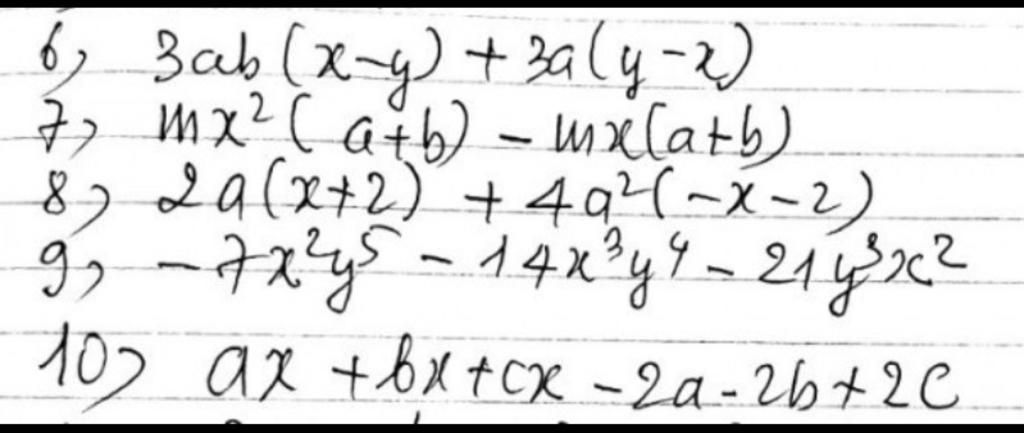 6) 3ab(x-y) + 3a(y-x)
7) mx²(a+b) - mx(a+b)
8) 2a(x+2) + 4a²(-x-2)
9) -7x²y⁵ - 14x³y⁴ - 21y³x²
10) ax + bx + cx - 2a - 2b + 2c